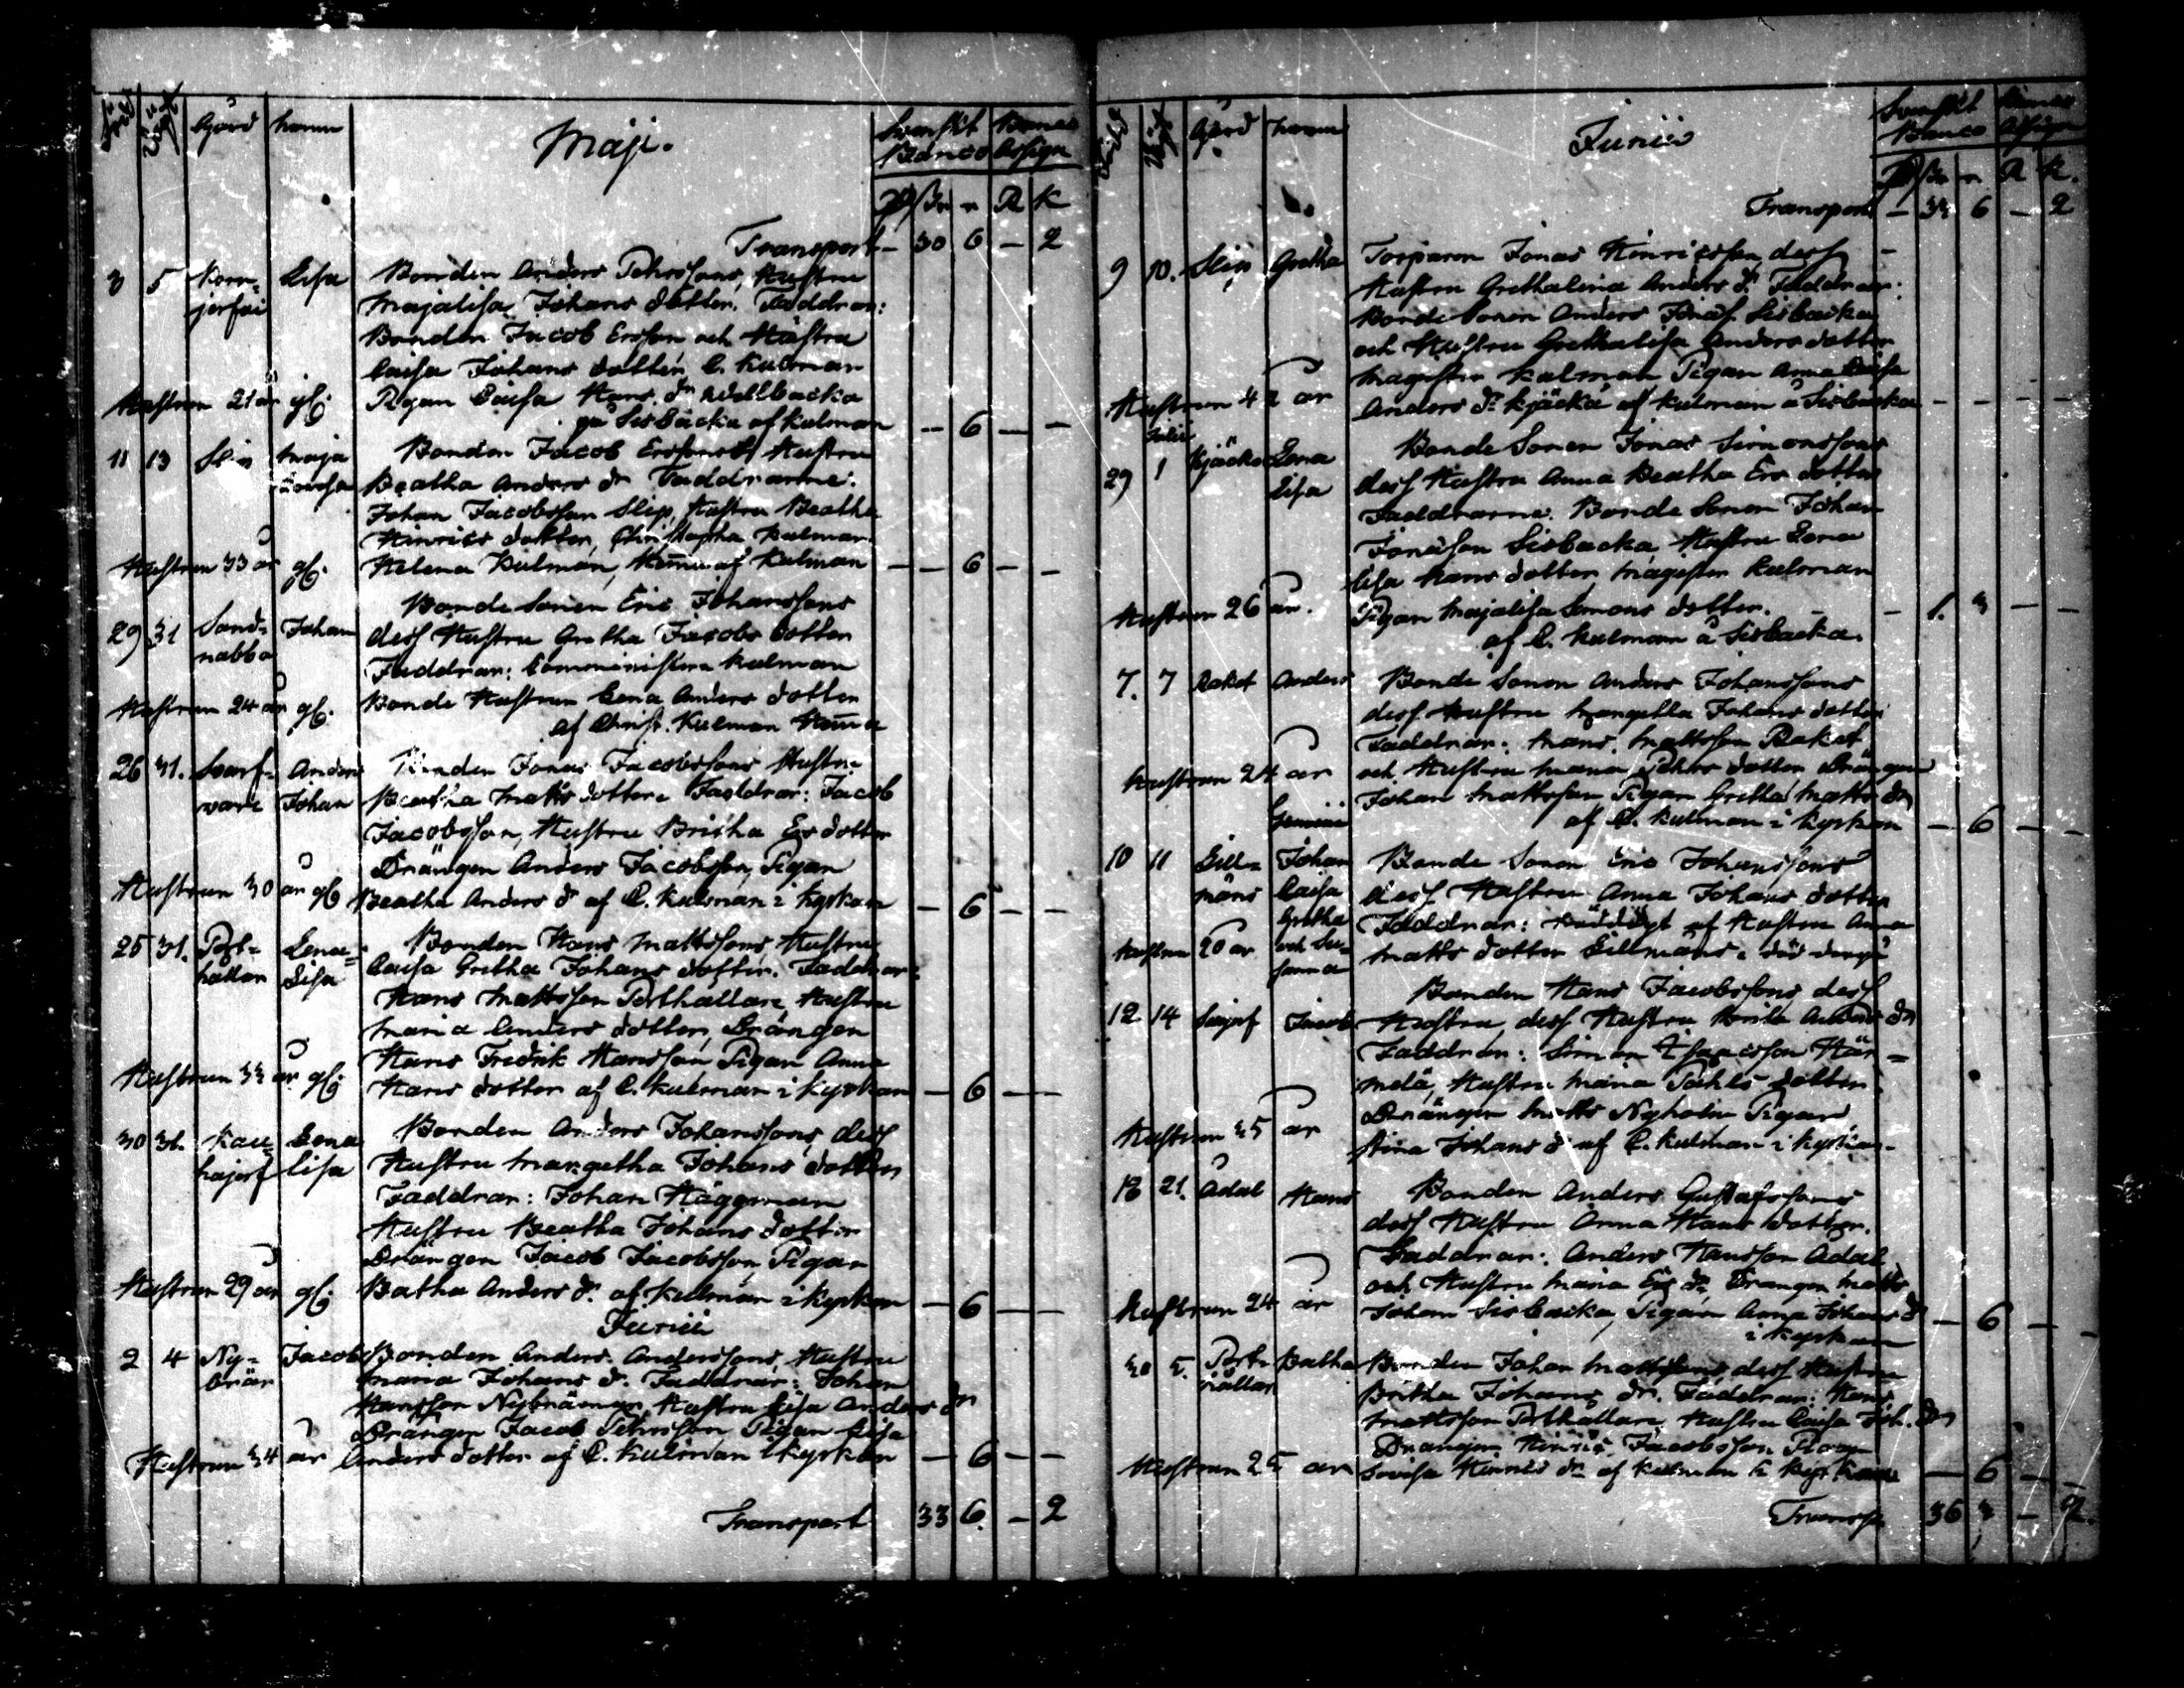 Gård namn
Maji.
Svenskt Banco
Transport – 30 6 – 2
3 5 Lisa Bonden Anders Pehrssons, Hustru
Majalisa Johans dotter. Faddrar:
Bonden Jacob Ersson och Hustru
Caisa Johans dotter, C. Kulman
Hustrun 21 år gl. Pigan Caisa Hans dr
på Sisbacka af Kulman – – 6 – –
11 13 Slip Maja Bonden Jacob Erssons Hustru
Lovisa Beatha Anders dr Faddrarne:
Johan Jacobsson Slip, Hustru Beatha
Hinrics dotter, Christopha Kulman
Hustrun 33 år gl. Helena Kulman, af Kulman – – 6 – –
29 31 Sand- Johan Bonde Sonen Eric Johanssons
nabba dess Hustru Gretha Jacobs dotter
Faddrar: Kulman
Hustrun 24 år gl. Bonde Hustrun Lena Anders dotter
af Christ. Kulman
26 31. Svarf- Anders Bonden Jonas Jacobssons Hustru
vare Johan Beatha Matts dotter Faddrar: Jacob
Jacobsson, Hustru Britha Ers dotter
Drängen Anders Jacobsson, Pigan
Hustrun 30 år gl Beatha Anders d af C. Kulman i Kyrkan – 6 – –
25 31. Port- Lena- Bonden Hans Mattssons, Hustru
hallar Lisa Caisa Gretha Johans dotter. Faddrar:
Hans Mattsson Porthallare, Hustru
Maria Anders dotter, Drängen
Hans Fredrik Hansson Pigan Anna
Hustrun 33 år gl. Hans dotter af C. Kulman i Kyrkan – 6 – –
30 31. Kau- Lena Bonden Anders Johanssons, dess
hajerf lisa Hustru Margetha Johans dotter
Faddrar: Johan Häggman
Hustru Beatha Johans dotter
Drängen Jacob Jacobsson, Pigan
Hustrun 29 år gl. Batha Anders d. af Kulman i Kyrkan – 6 – –
Junii
2 4 Ny- Jacob Bonden Anders Anderssons, Hustru
brän Maria Johans d. Faddrar: Johan
Hansson Nybränn Hustru Lisa Anders dr
Drängen Jacob Pehrsson Pigan Lisa
Hustrun 34 år Anders dotter af C. Kulman i Kyrkan – 6 – –
Transport 33 6. – 2
Gård namn
Junii
Svenskt Banco
Transport – 33 6 – 2
9 10. Slip Gretha Torparen Jonas Hinricsson, dess
Hustru Grethalena Anders dr Faddrar:
Bonde Sonen Anders Jonass. Sisbacka
och Hustru Grethalisa Anders dotter
Magister Kulman Pigan Anna Caisa
Hustrun 42 år Anders dr Kjäcka af Kulman å Sisbacka – – – –
Julii
29 1 Kjäcka Lena Bonde Sonen Jonas Simonssons
Lisa dess Hustru Anna Beatha Ers dotter
Faddrarne: Bonde Sonen Johan
Jonasson Sisbacka Hustru Lena
Lisa Hans dotter Magister Kulman
Hustrun 26 år. Pigan Majalisa Simons dotter. – – 1. 3 – –
af C. Kulman å Sisbacka.
7. 7 Raket Anders Bonde Sonen Anders Johanssons
dess Hustru Margetha Johans dotter
Faddrar: Hans Mattsson Raket
och Hustru Maria Pehrs dotter Drängen
Hustrun 24 år Johan Mattsson Pigan Gretha Matts dr
af C. Kulman i Kyrkan – 6 – –
10 11 Gill- Johan Bonde Sonen Eric Johanssons
mans Caisa dess Hustru Anna Johans dotter
Gretha Faddrar: Nöddöpt af Hustru Anna
Hustrun 20 år och Su- Matts dotter Gillmans
sanna
12 14 Jacob Bonden Hans Jacobssons, dess
Hustru, dess Hustru Brita Anders dr
Faddrar: Simon Isacsson Här-
melä, Hustru Maria Pehrs dotter
Drängen Matts Nyholm Pigan
Hustrun 35 år Stina Johans d af C. Kulman i Kyrkan.
18 21. Adal Hans Bonden Anders Gustafssons
dess Hustru Anna Hans dotter.
Faddrar: Anders Hansson Adal
och Hustru Maria Ers dr, Drängen Matts
Hustrun 24 år Johan Sisbacka, Pigan Anna Johans dr – 6 – –
i Kyrkan
Port- Batha Bonden Johan Mattssons, dess Hustru
hallar Britha Johans dr. Faddrar: Hans
Mattsson Porthallare, Hustru Caisa Joh. dr
Drängen Hinric Jacobsson Pigan
Hustrun år Lovisa Hinrics dr af Kulman i Kyrkan – 6 – –
Transp. 36 3 – 2.